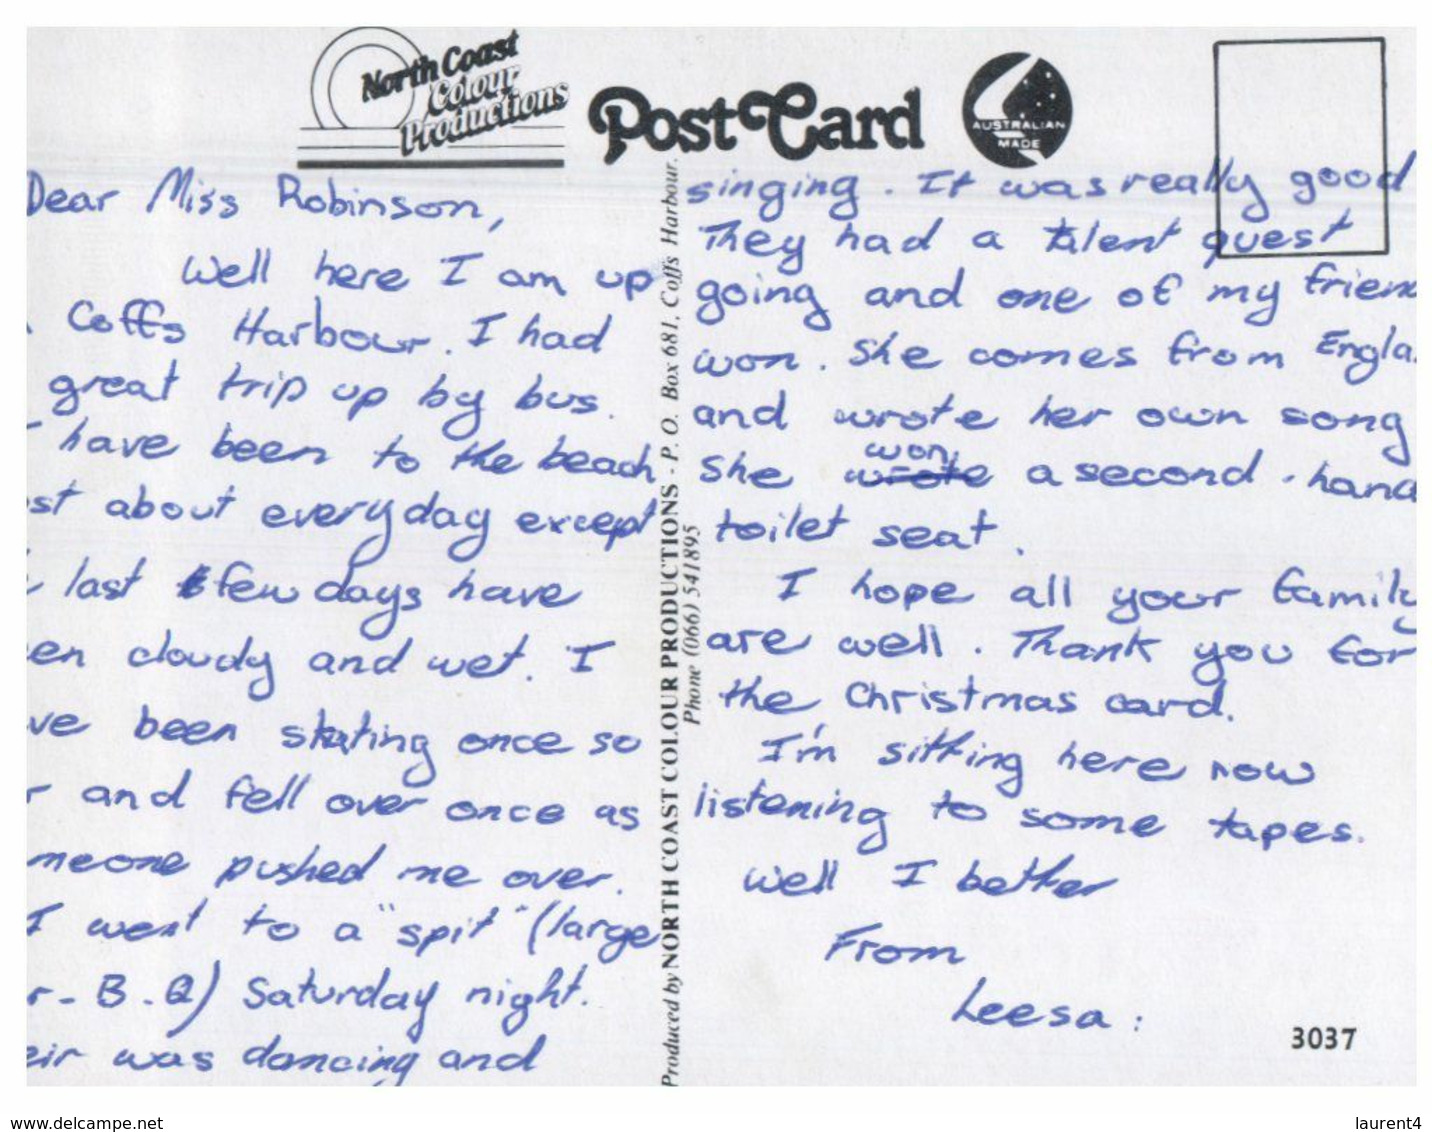 North Coast
Colour
Productions
PostCard
AUSTRALIAN
MADE
Dear Miss Robinson,
Well here I am up
Coffs Harbour. I had
great trip up by bus.
have been to the beach
st about everyday except
last few days have
en cloudy and wet. I
ve been skating once so
r and fell over once as
meone pushed me over.
I went to a "spit" (large
r-B-Q) Saturday night.
eir was dancing and
Produced by NORTH COAST COLOUR PRODUCTIONS - P. O. Box 681, Coffs Harbour.
Phone (066) 541895
singing. It was really good
They had a talent quest
going and one of my frien
won. She comes from Engla
and wrote her own song
won
She wrote a second-hand
toilet seat.
I hope all your family
are well. Thank you for
the Christmas card.
I'm sitting here now
listening to some tapes.
Well I better
From
Leesa.
3037
www.delcampe.net
laurent4